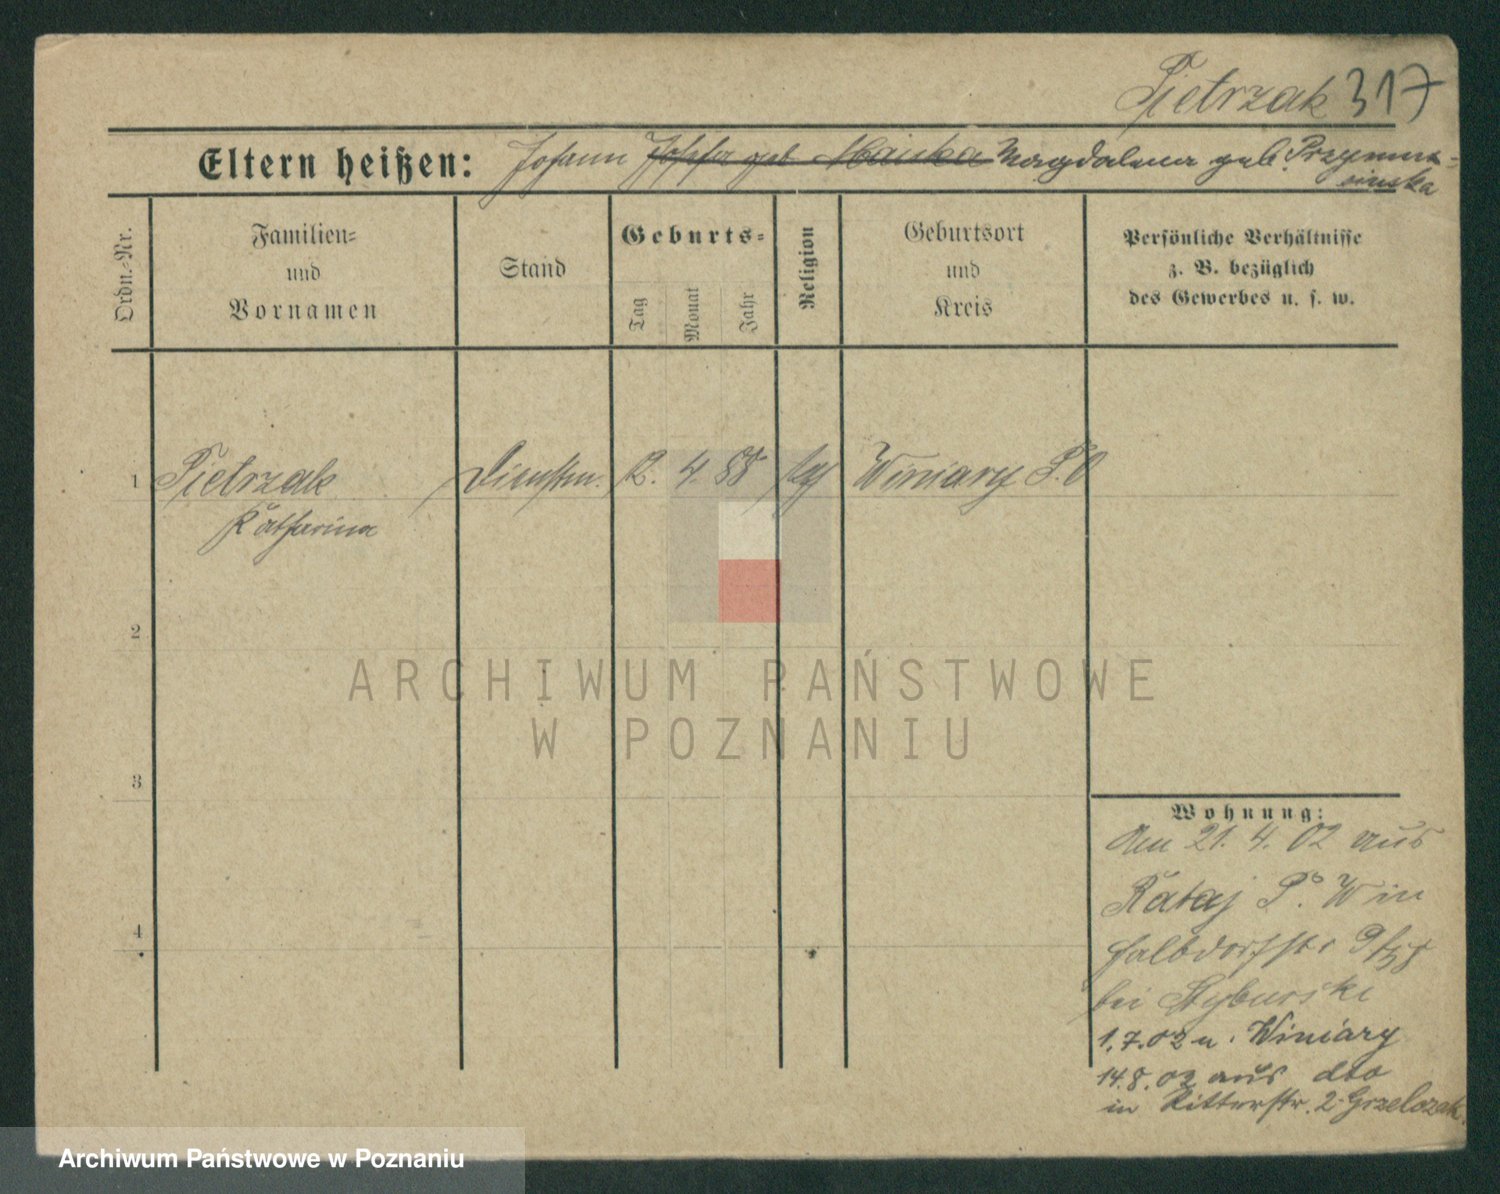 Pietrzak 317
Eltern heißen: Johann Josefa geb. Magdalena geb. Przymu-
sinska
Ordn.-Nr.
Familien-
und
Vornamen
Stand
Geburts-
Tag
Monat
Jahr
Religion
Geburtsort
und
Kreis
Persönliche Verhältnisse
z. B. bezüglich
des Gewerbes u. s. w.
1 Pietrzak Dienstm. 12. 4. 88 kg Winiary P. O
Katharina
2
3
4
Wohnung:
Am 21. 4. 02 aus
Rataj P. O. W in
Halbdorfstr.
bei
1.7.02 n. Winiary
14.8.02 aus dto
in Ritterstr. 2 Grzelczak.
ARCHIWUM PAŃSTWOWE
W POZNANIU
Archiwum Państwowe w Poznaniu